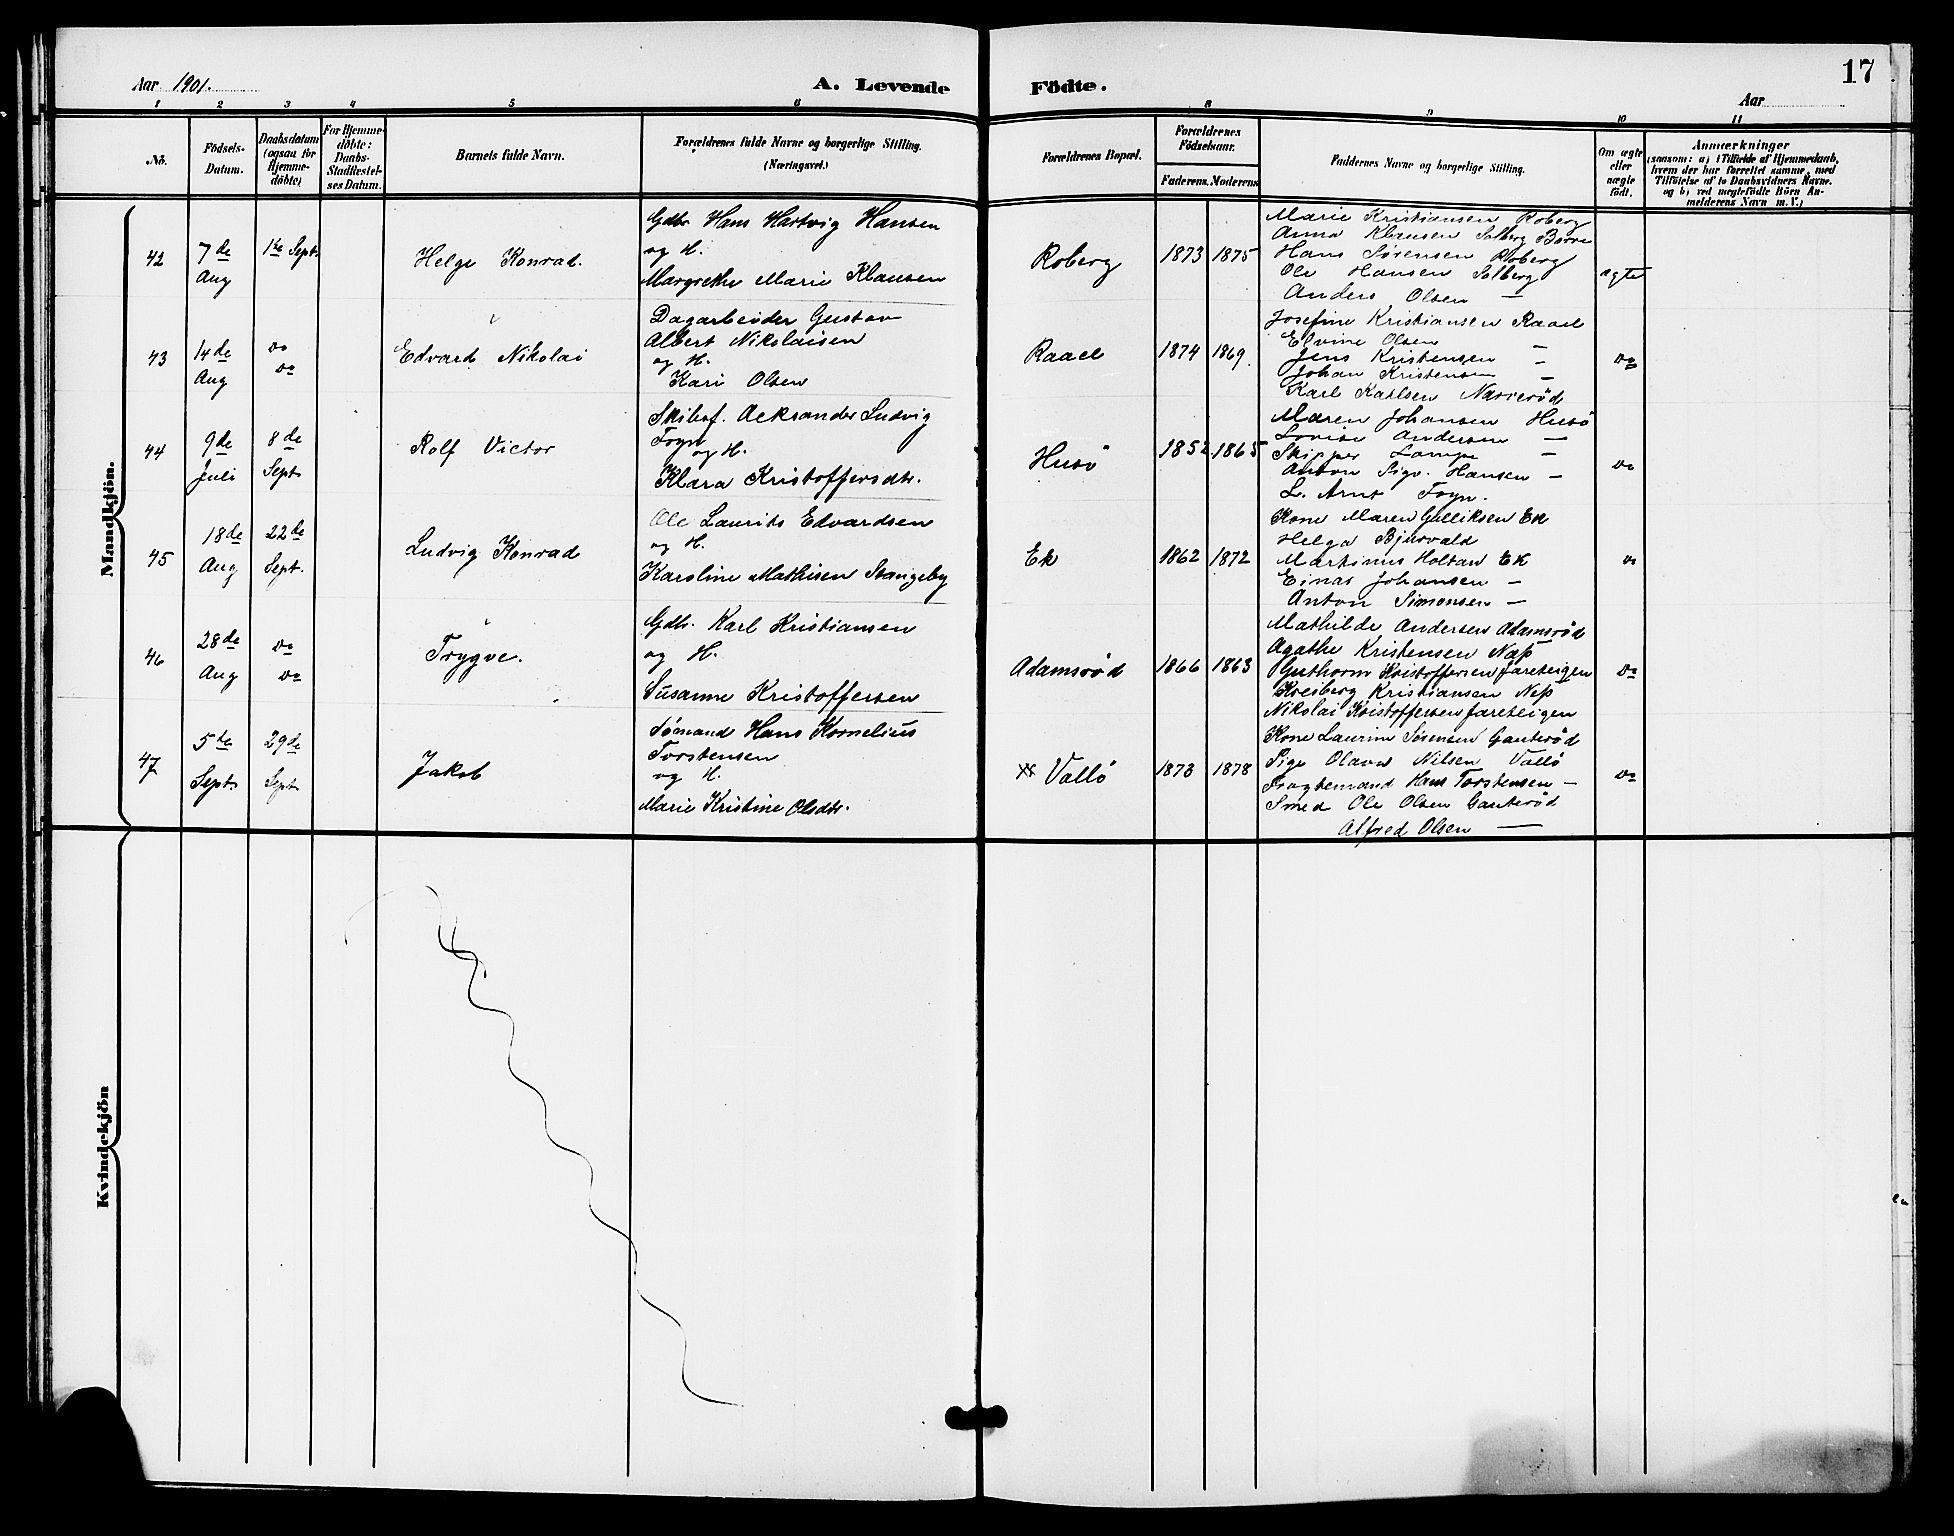 17
Aar 1901.
A. Levende Födte.
Aar
1 2 3 4 5 6 8 9 10 11
No.
Födsels-Datum.
Daabsdatum (ogsaa for Hjemme-döbte)
For Hjemme-döbte: Daabs-Stadfestel-ses Datum.
Barnets fulde Navn.
Forældrenes fulde Navne og borgerlige Stilling. (Næringsvei.)
Forældrenes Bopæl.
Forældrenes Födselsaar.
Faderens. Moderens.
Faddernes Navne og borgerlige Stilling.
Om ægte eller uægte födt.
Anmærkninger
(saasom: a) i Tilfælde af Hjemmedaab,
hvem der har forrettet samme, med
Tilföielse af to Daabsvidners Navne,
og b) ved uægtefödte Börn An-
melderens Navn m. V.)
Mandkjön.
42
7de Aug
1ste Sept.
Helge Konrad.
Gdbr Hans Hartvig Hansen
og H.
Margrethe Marie Klausen
Roberg
1873 1875
Marie Kristiansen Roberg
Anna Klausen Solberg Borre
Hans Sørensen Roberg
Ole Hansen Solberg
Anders Olsen —
ægte
43
14de Aug
do do
Edvard Nikolai
Dagarbeider Gustav
Albert Nikolaisen
og H.
Kari Olsen
Raael
1874 1869.
Josefine Kristiansen Raael
Elvine Olsen —
Jens Kristensen —
Johan Kristensen —
Karl Karlsen Narverød
do
44
9de Juli
8de Sept
Rolf Victor
Skibsf. Aleksander Ludvig
Foyn
og H.
Klara Kristoffersdtr.
Husö
1852 1865
Maren Johansen Husö
Lovise Andersen —
Skipper —
Anton Sigv. Hansen —
L. Arnt Foyn.
do
45
18de Aug
22de Sept.
Ludvig Konrad
Ole Laurits Edvardsen
og H.
Karoline Mathisen Stangeby
Ek
1862 1872
Kone Maren Gulliksen Ek
Helga Bjurvald
Martinus Holtan Ek
Einar Johansen —
Anton Simonsen —
do
46
28de Aug
do do
Trygve.
Gdb. Karl Kristiansen
og H.
Susanne Kristoffersen
Adamsrød
1866 1863
Mathilde Andersen Adamsrød
Agathe Kristensen Næs
Guthorm Kristoffersen Jareteigen
Kristiansen Nes
Nikolai Kristoffersen Jareteigen
do
47
5te Sept.
29de Sept
Jakob
Sømand Hans Kornelius
Torstensen
og H.
Marie Kristine Olsdtr.
Vallö
1873 1878
Kone Laurine Sørensen Gauterød
Pige Olava Nilsen Vallö
Fragtemand Hans Torstensen —
Smed Ole Olsen Gauterød
Alfred Olsen —
do
Kvindekjön